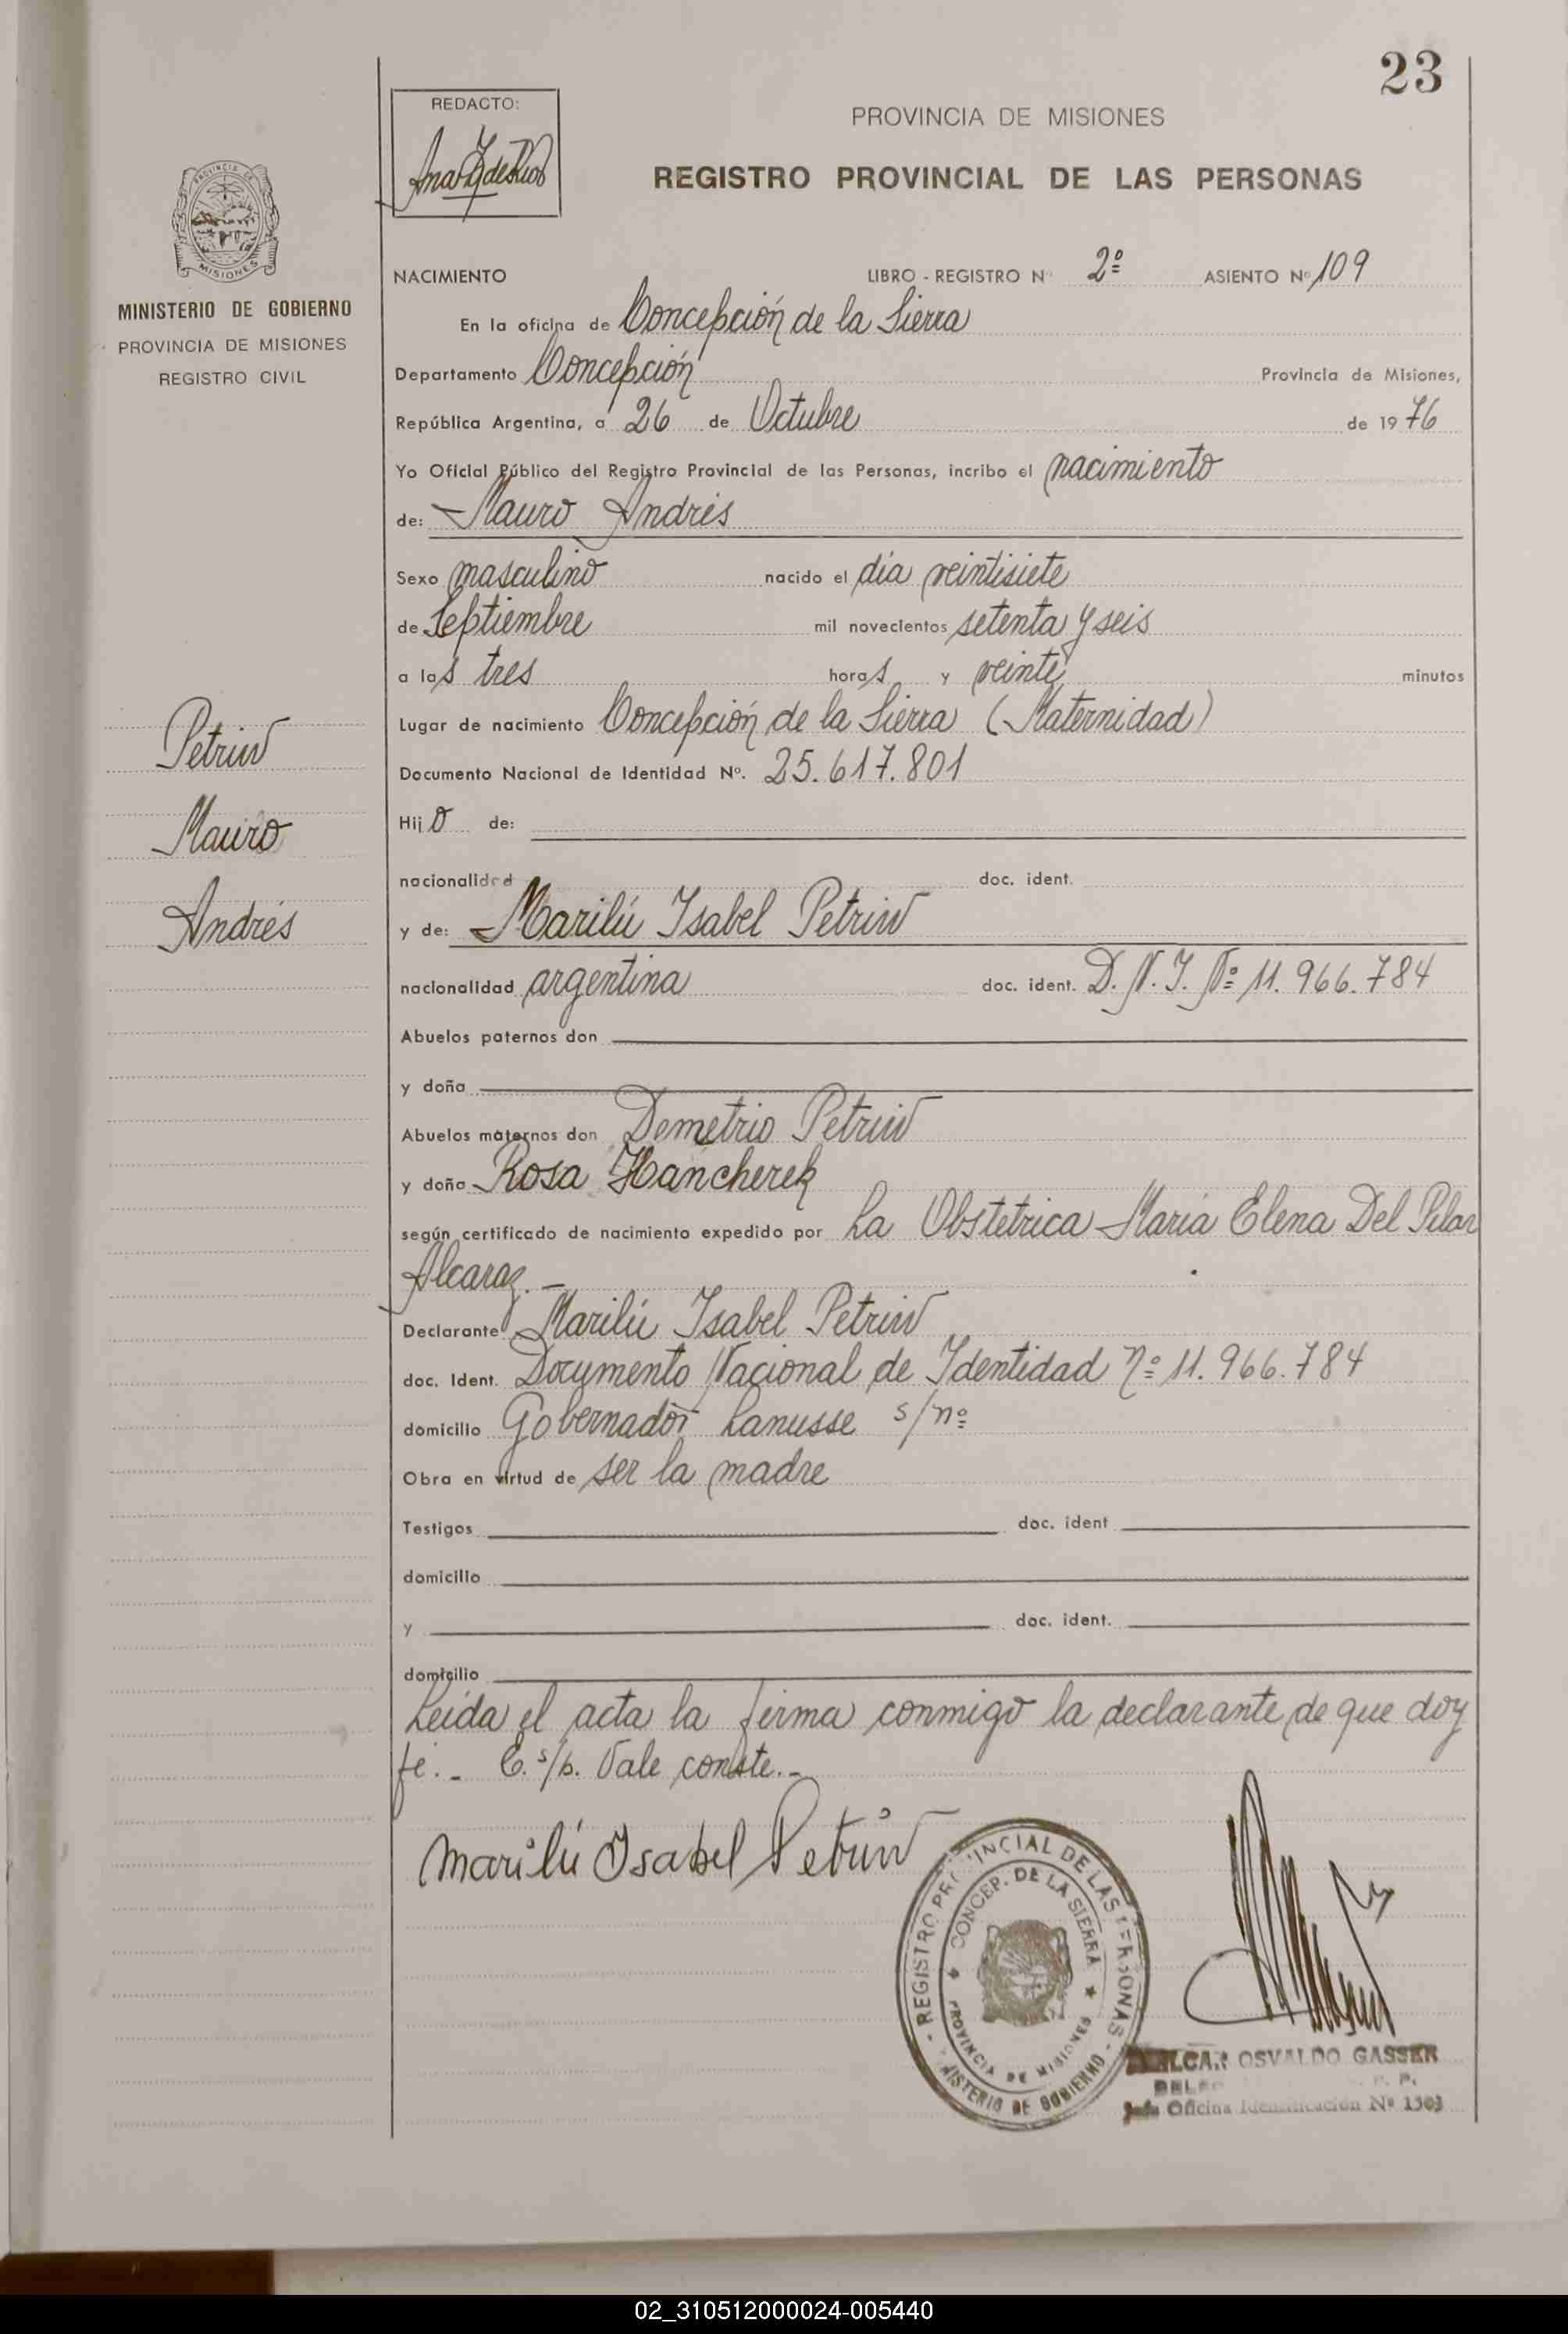 23
REDACTO:
PROVINCIA DE MISIONES
REGISTRO PROVINCIAL DE LAS PERSONAS
PROVINCIA DE
MISIONES
MINISTERIO DE GOBIERNO
PROVINCIA DE MISIONES
REGISTRO CIVIL
NACIMIENTO LIBRO - REGISTRO Nº 2º ASIENTO Nº 109
En la oficina de Concepción de la Sierra
Departamento Concepción Provincia de Misiones,
República Argentina, a 26 de Octubre de 1976
Yo Oficial Público del Registro Provincial de las Personas, incribo el nacimiento
de: Mauro Andrés
Sexo masculino nacido el día veintisiete
de Septiembre mil novecientos setenta y seis
a las tres horas y veinte minutos
Lugar de nacimiento Concepción de la Sierra (Maternidad)
Documento Nacional de Identidad Nº. 25.617.801
Hijo de:
nacionalidad doc. ident.
y de: Marilú Isabel Petriw
nacionalidad argentina doc. ident. D.N.I. Nº 11.966.784
Abuelos paternos don
y doña
Abuelos maternos don Demetrio Petriw
y doña Rosa Hancherek
según certificado de nacimiento expedido por La Obstetrica María Elena Del Pilar
Alcaraz.-
Declarante Marilú Isabel Petriw
doc. Ident. Documento Nacional de Identidad Nº 11.966.784
domicilio Gobernador Lanusse s/nº
Obra en virtud de ser la madre
Testigos doc. ident
domicilio
y doc. ident.
domicilio
Leída el acta la firma conmigo la declarante de que doy
fé.- E. s/b. Vale conste.-
Petriw
Mauro
Andrés
Marilú Isabel Petriw
REGISTRO PROVINCIAL DE LAS PERSONAS
CONCEP. DE LA SIERRA
PROVINCIA DE MISIONES
MINISTERIO DE GOBIERNO
OSVALDO GASSER
Jefe Oficina Identificación Nº 1303
02_310512000024-005440